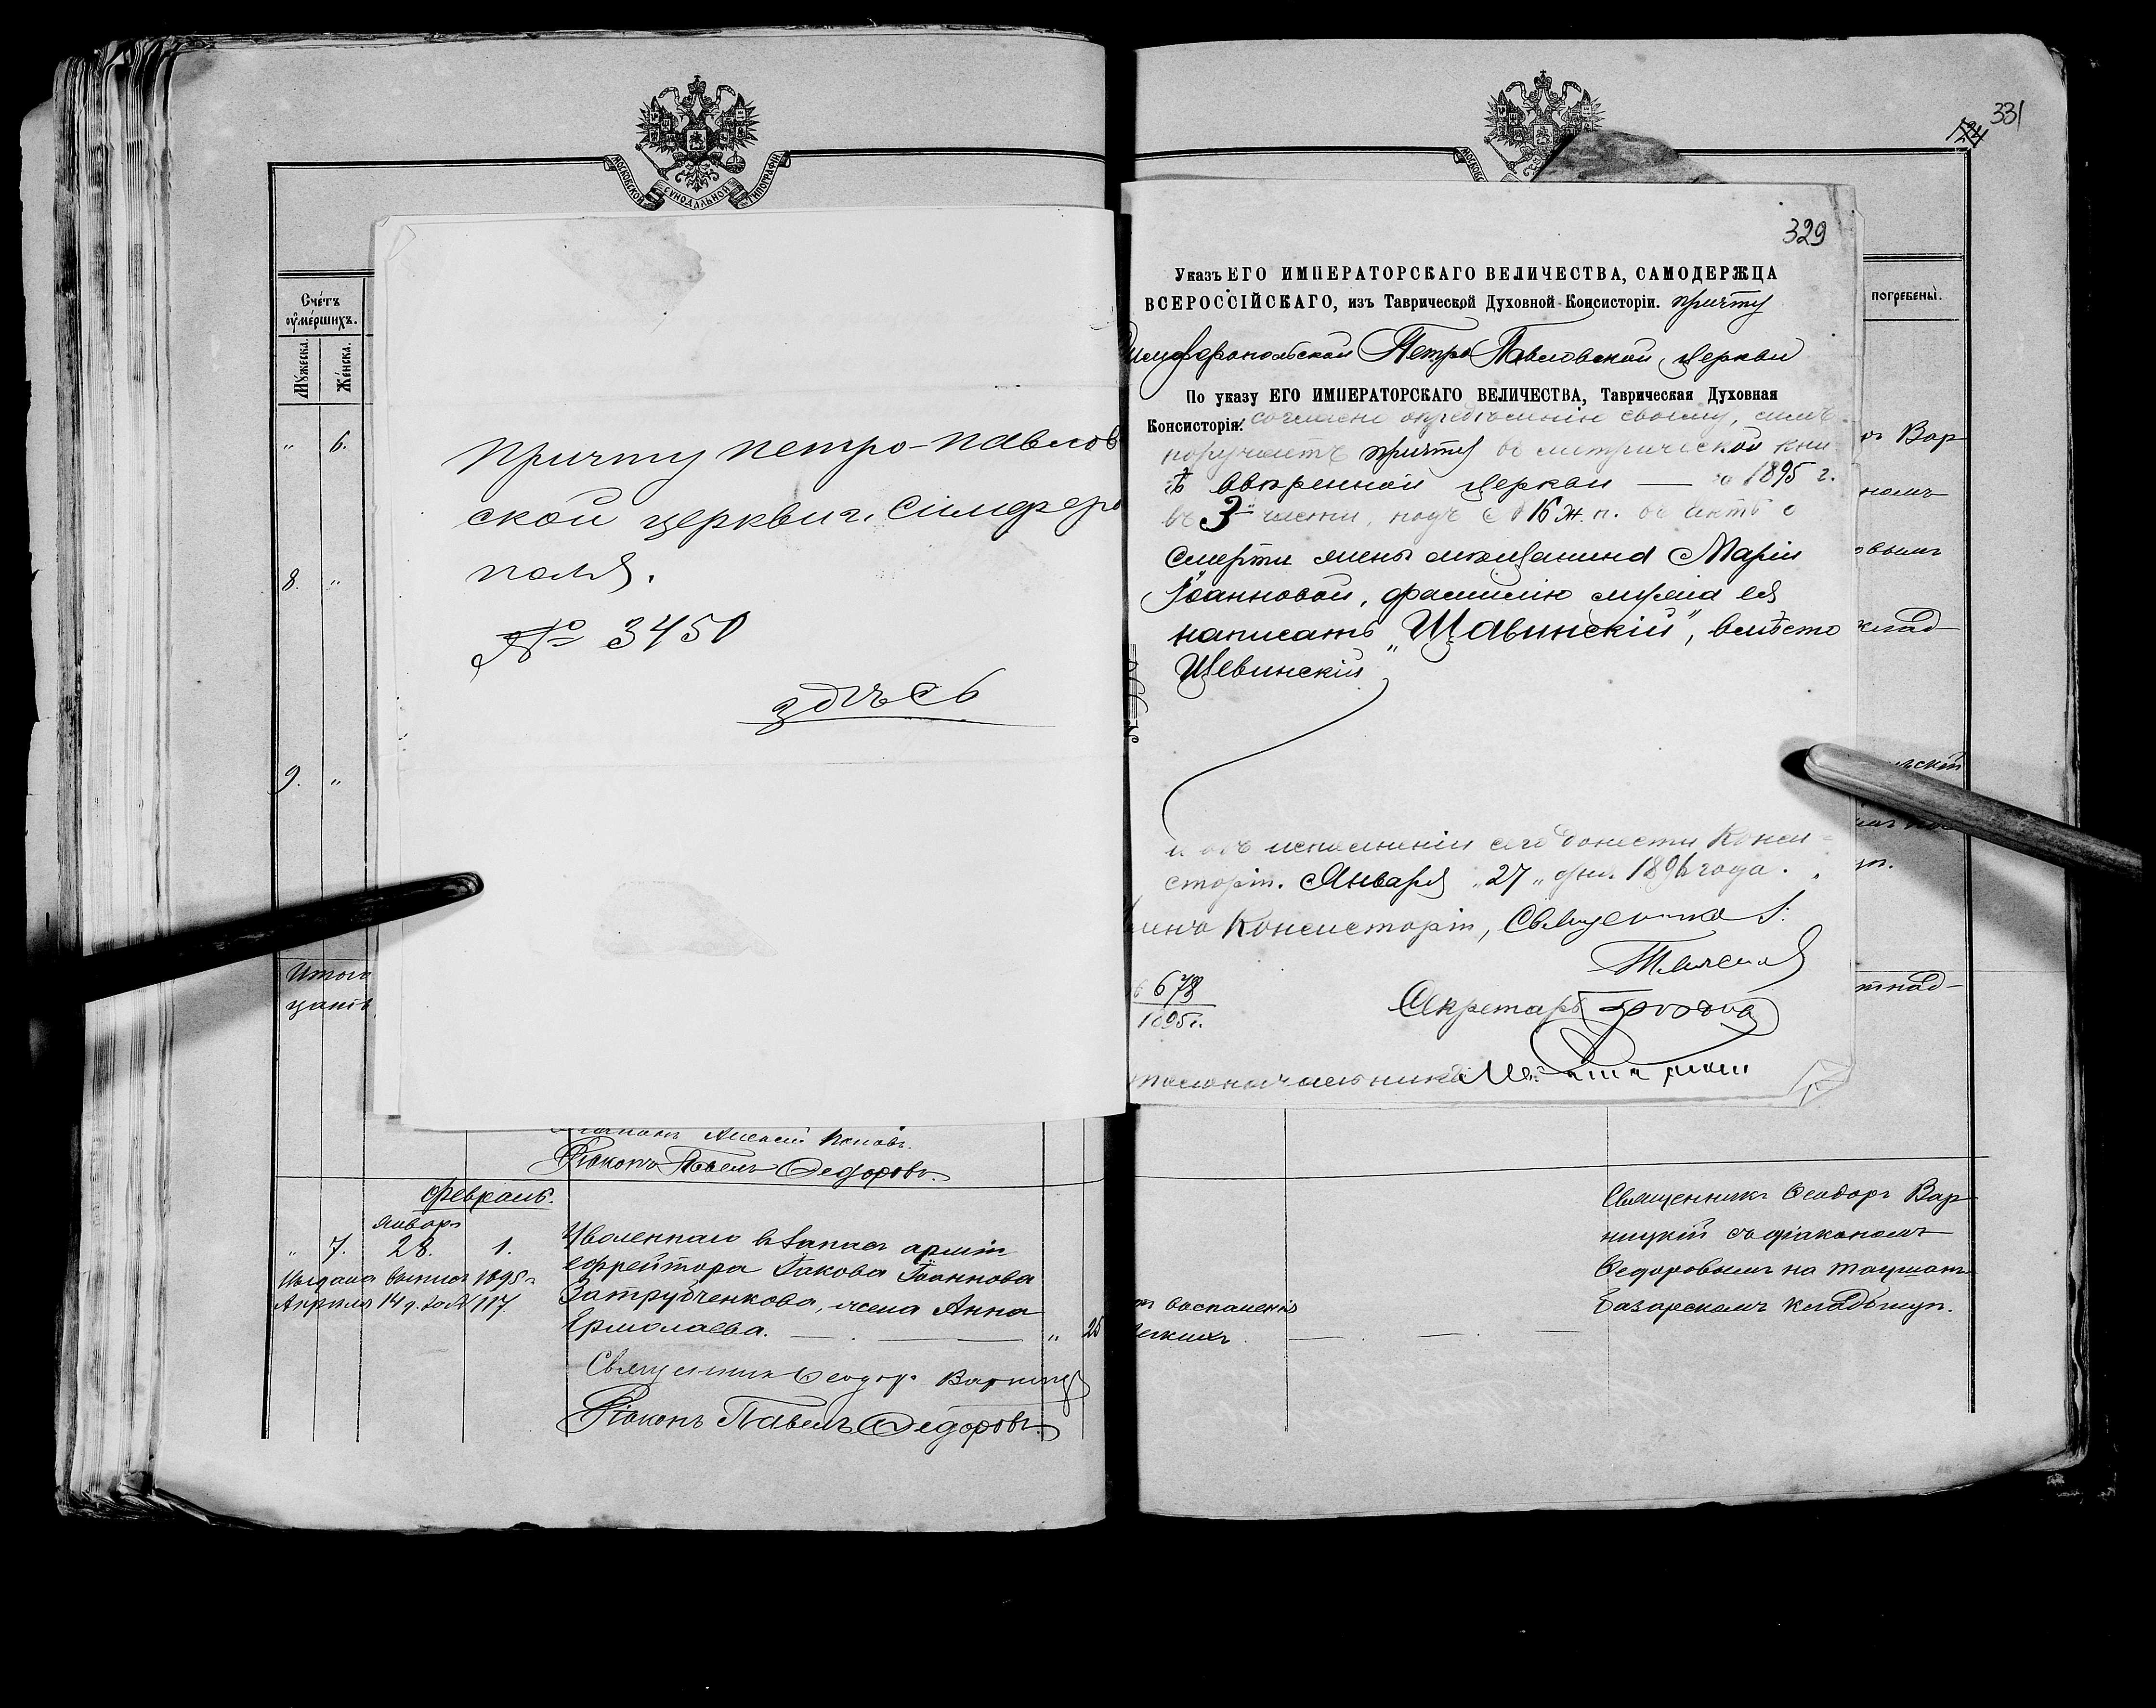 МОСКОВСКОЙ СѴНОДАЛЬНОЙ ТИПОГРАФІИ
Счетъ
оумершихъ.
Мужеска.
Женска.
„ 6.
8. „
9. „
Итого
Причту Петро-Павлов
ской церкви г. Симферо
поля.
№ 3450
здѣсь
Діаконъ Павелъ Ѳедоровъ.
Февраль.
январ.
„ 7. 28. 1.
Уволеннаго въ запасъ арміи
ефрейтора Іакова Іоаннова
Затрубченкова, жена Анна
Ермолаева. „ 25
Выдана выпись 1895 г.
Апрѣля 14 д. за № 117
Священникъ Ѳеодоръ Варницкій
Діаконъ Павелъ Ѳедоровъ.
331
124
329
Указъ ЕГО ИМПЕРАТОРСКАГО ВЕЛИЧЕСТВА, САМОДЕРЖЦА
ВСЕРОССІЙСКАГО, изъ Таврической Духовной Консисторіи. причту
Симферопольской Петро Павловской церкви
По указу ЕГО ИМПЕРАТОРСКАГО ВЕЛИЧЕСТВА, Таврическая Духовная
Консисторія: согласно опредѣленію своему, симъ
поручаетъ причту въ метрической кни
гѣ ввѣренной церкви — за 1895 г.
въ 3й части, подъ № 16 ж. п. въ актѣ о
смерти жены мѣщанина Маріи
Іоанновой, фамилію мужа ея
написать „Щавинскій", вмѣсто
Щевинскій
и объ исполненіи сего донести Конси-
сторіи. Января „27„ дня 1896 года.
Членъ Консисторіи, Священникъ
678
1895 г.
Секретарь
Столоначальникъ
погребены.
ъ Вар
клад
тнад-
воспаленія
легкихъ.
Священникъ Ѳеодоръ Вар
ницкій съ діакономъ
Ѳедоровымъ на Таушанъ
базарскомъ кладбищѣ.